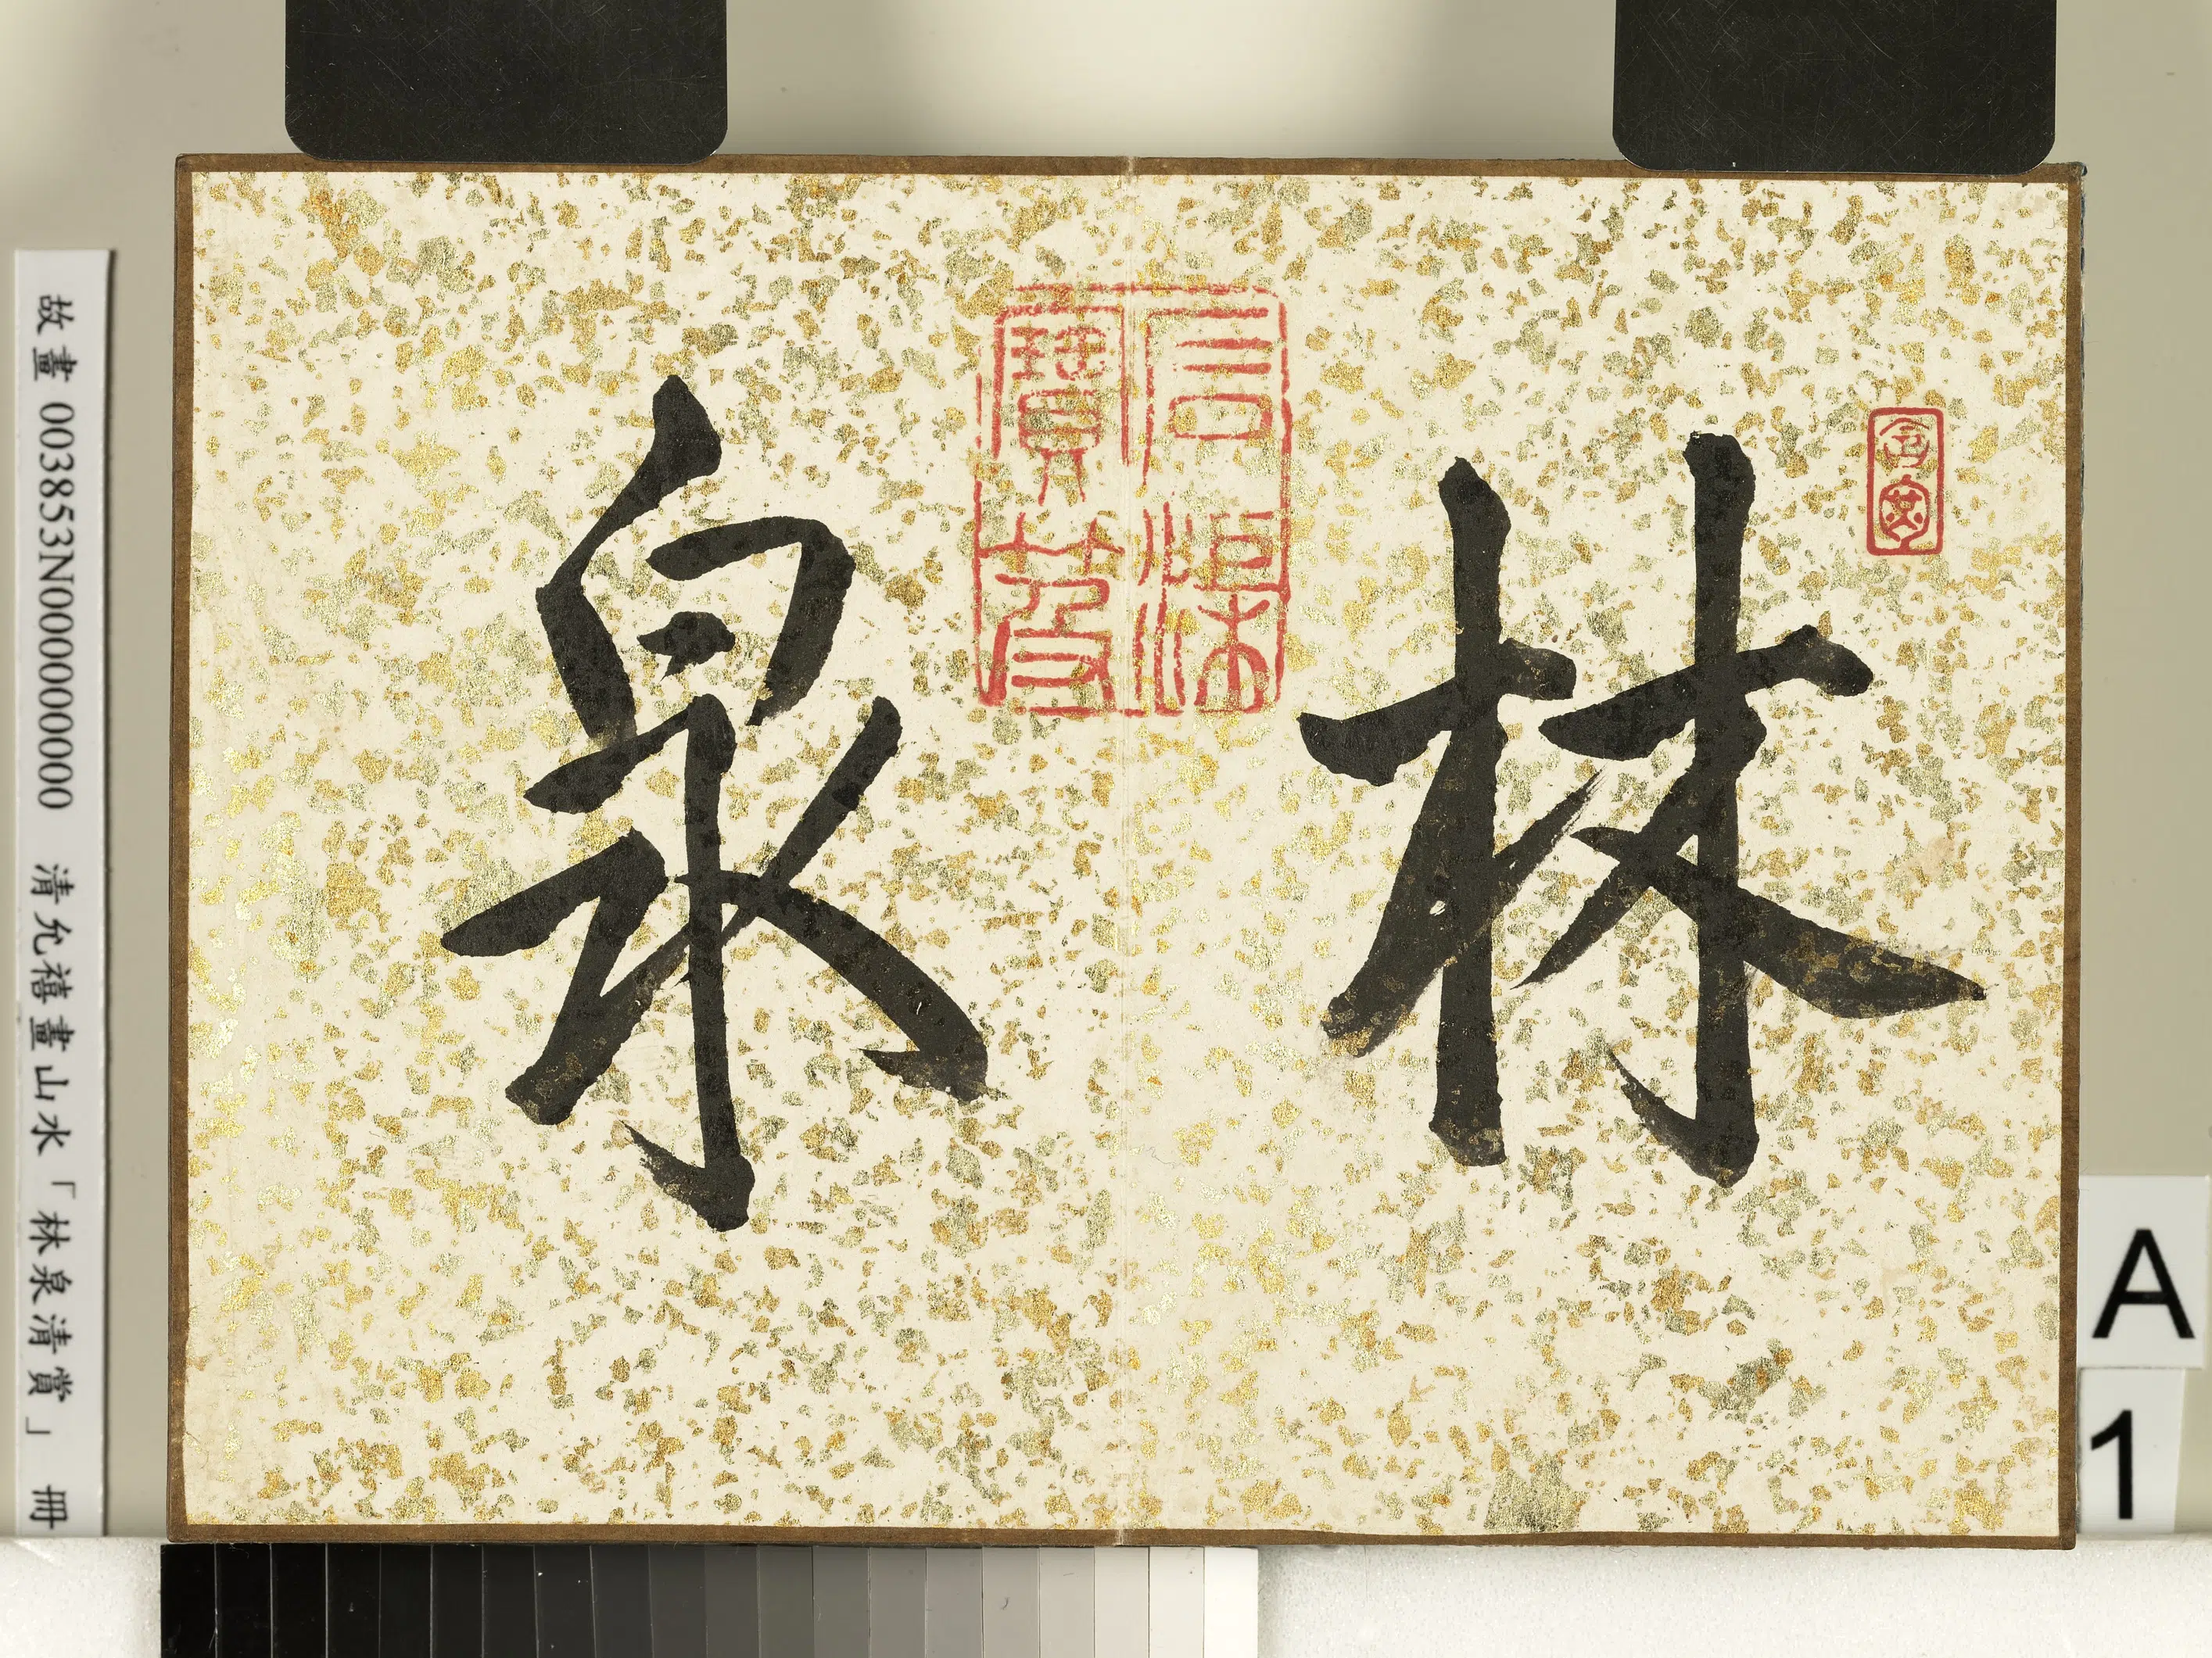 林泉
故畫 003853N000000000 清允禧畫山水「林泉清賞」冊
A
1